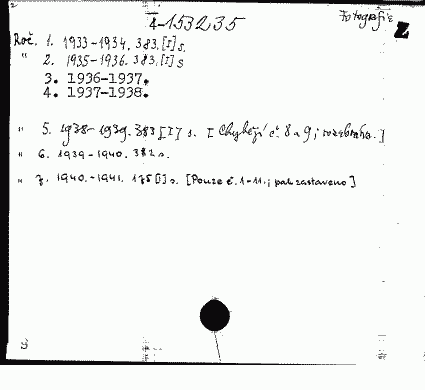 4-153235
Fotografie
Z
Roč. 1. 1933-1934. 383.[I] s.
" 2. 1935-1936. 383.[I] s
3. 1936-1937.
4. 1937-1938.
" 5. 1938-1939. 383 [I] s. [Chybějí č. 8 a 9; rozebráno.]
" 6. 1939-1940. 382 s.
" 7. 1940.-1941. 175 [I] s. [Pouze č. 1-11.; pak zastaveno]